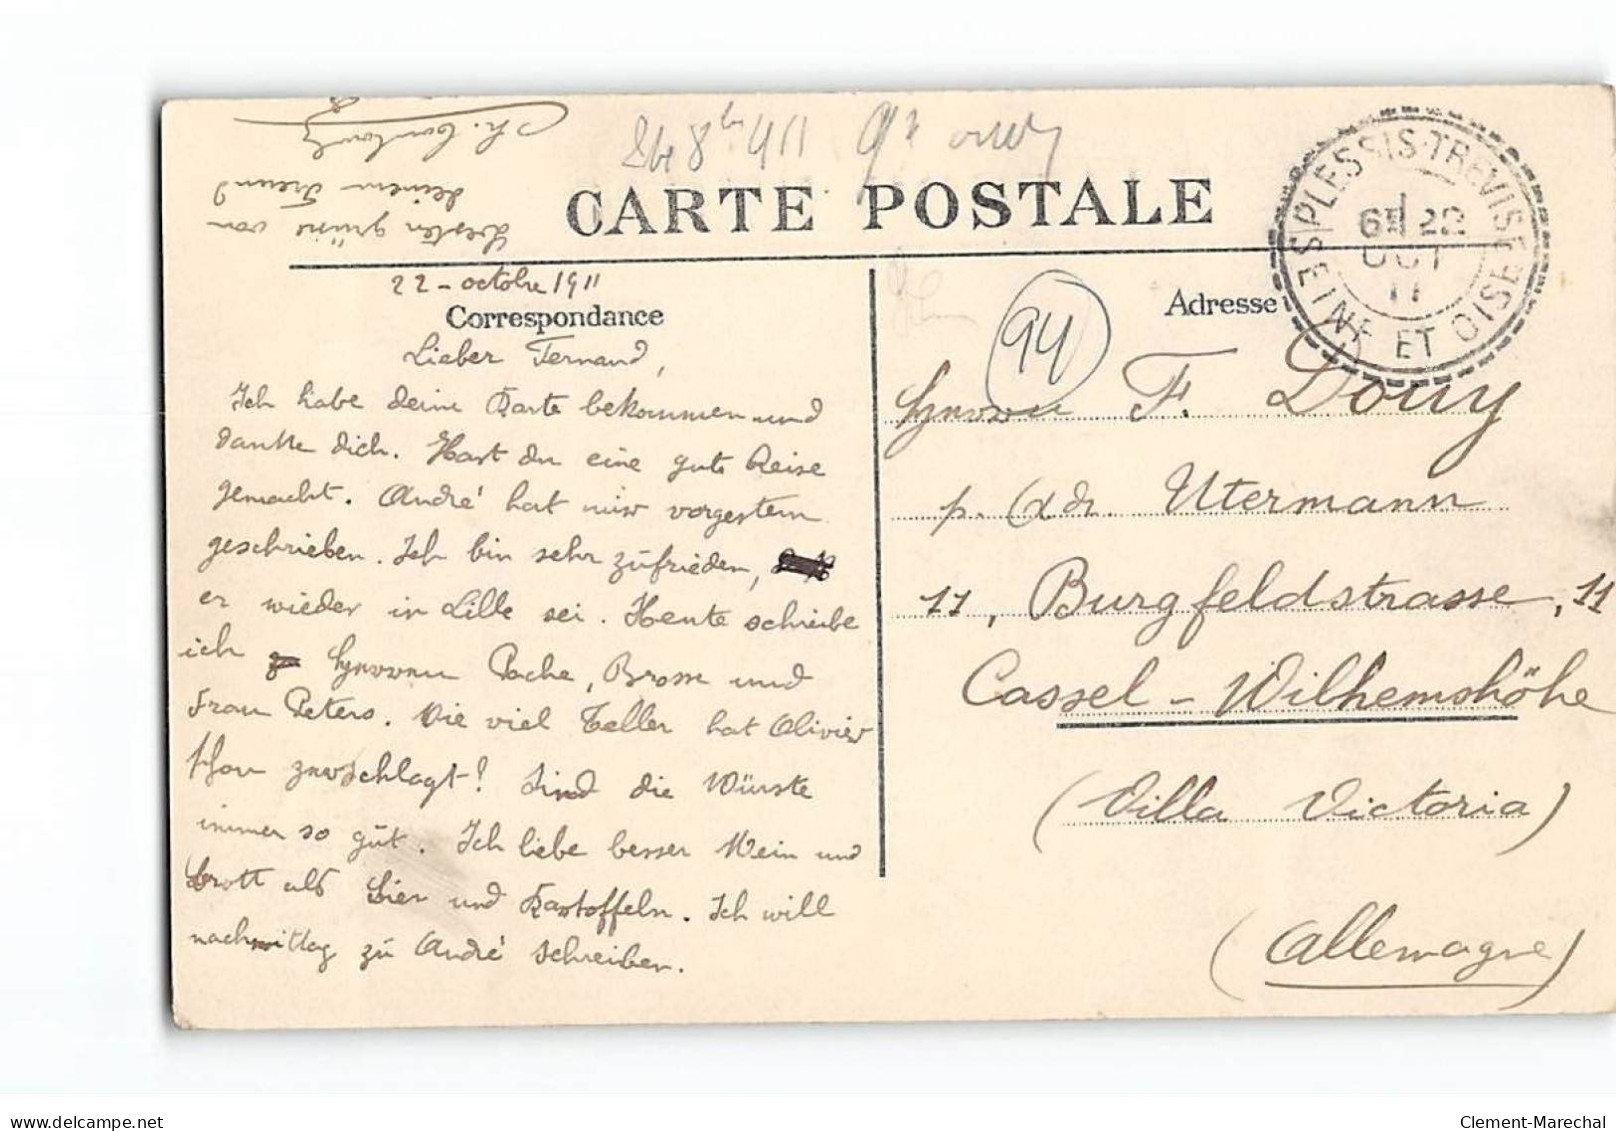 CARTE POSTALE
PLESSIS-TREVISE
SEINE ET OISE
22
OCT
11
22 - octobre 1911
Correspondance
Lieber Fernand,
Ich habe deine Karte bekommen und
danke dich. Hast du eine gute Reise
gemacht. André hat mir vorgestern
geschrieben. Ich bin sehr zufrieden,
er wieder in Lille sei. Heute schreibe
ich Herren Pache, Brosse und
Frau Peters. Wie viel Teller hat Olivier
schon zerschlagt? Sind die Würste
immer so gut. Ich liebe besser Wein und
Brott als Bier und Kartoffeln. Ich will
nachmittag zu André schreiben.
besten grüße von
deinem Freund
Adresse
94
Herrn F. Douy
p. Adr. Utermann
11, Burgfeldstrasse, 11
Cassel - Wilhemshöhe
(Villa Victoria)
(Allemagne)
delcampe.net
Clement-Marechal